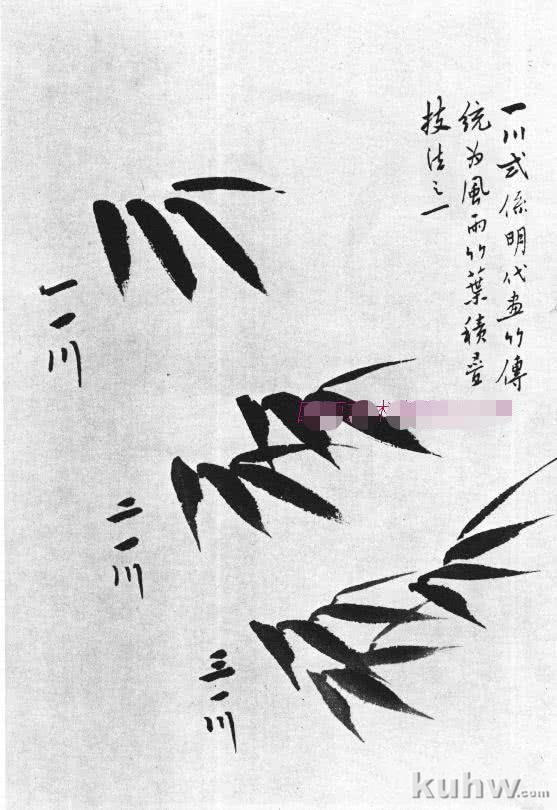 一川式係明代畫竹傳
統为風雨竹葉積叠
技法之一
一一川
二一川
三一川
kuhw.com